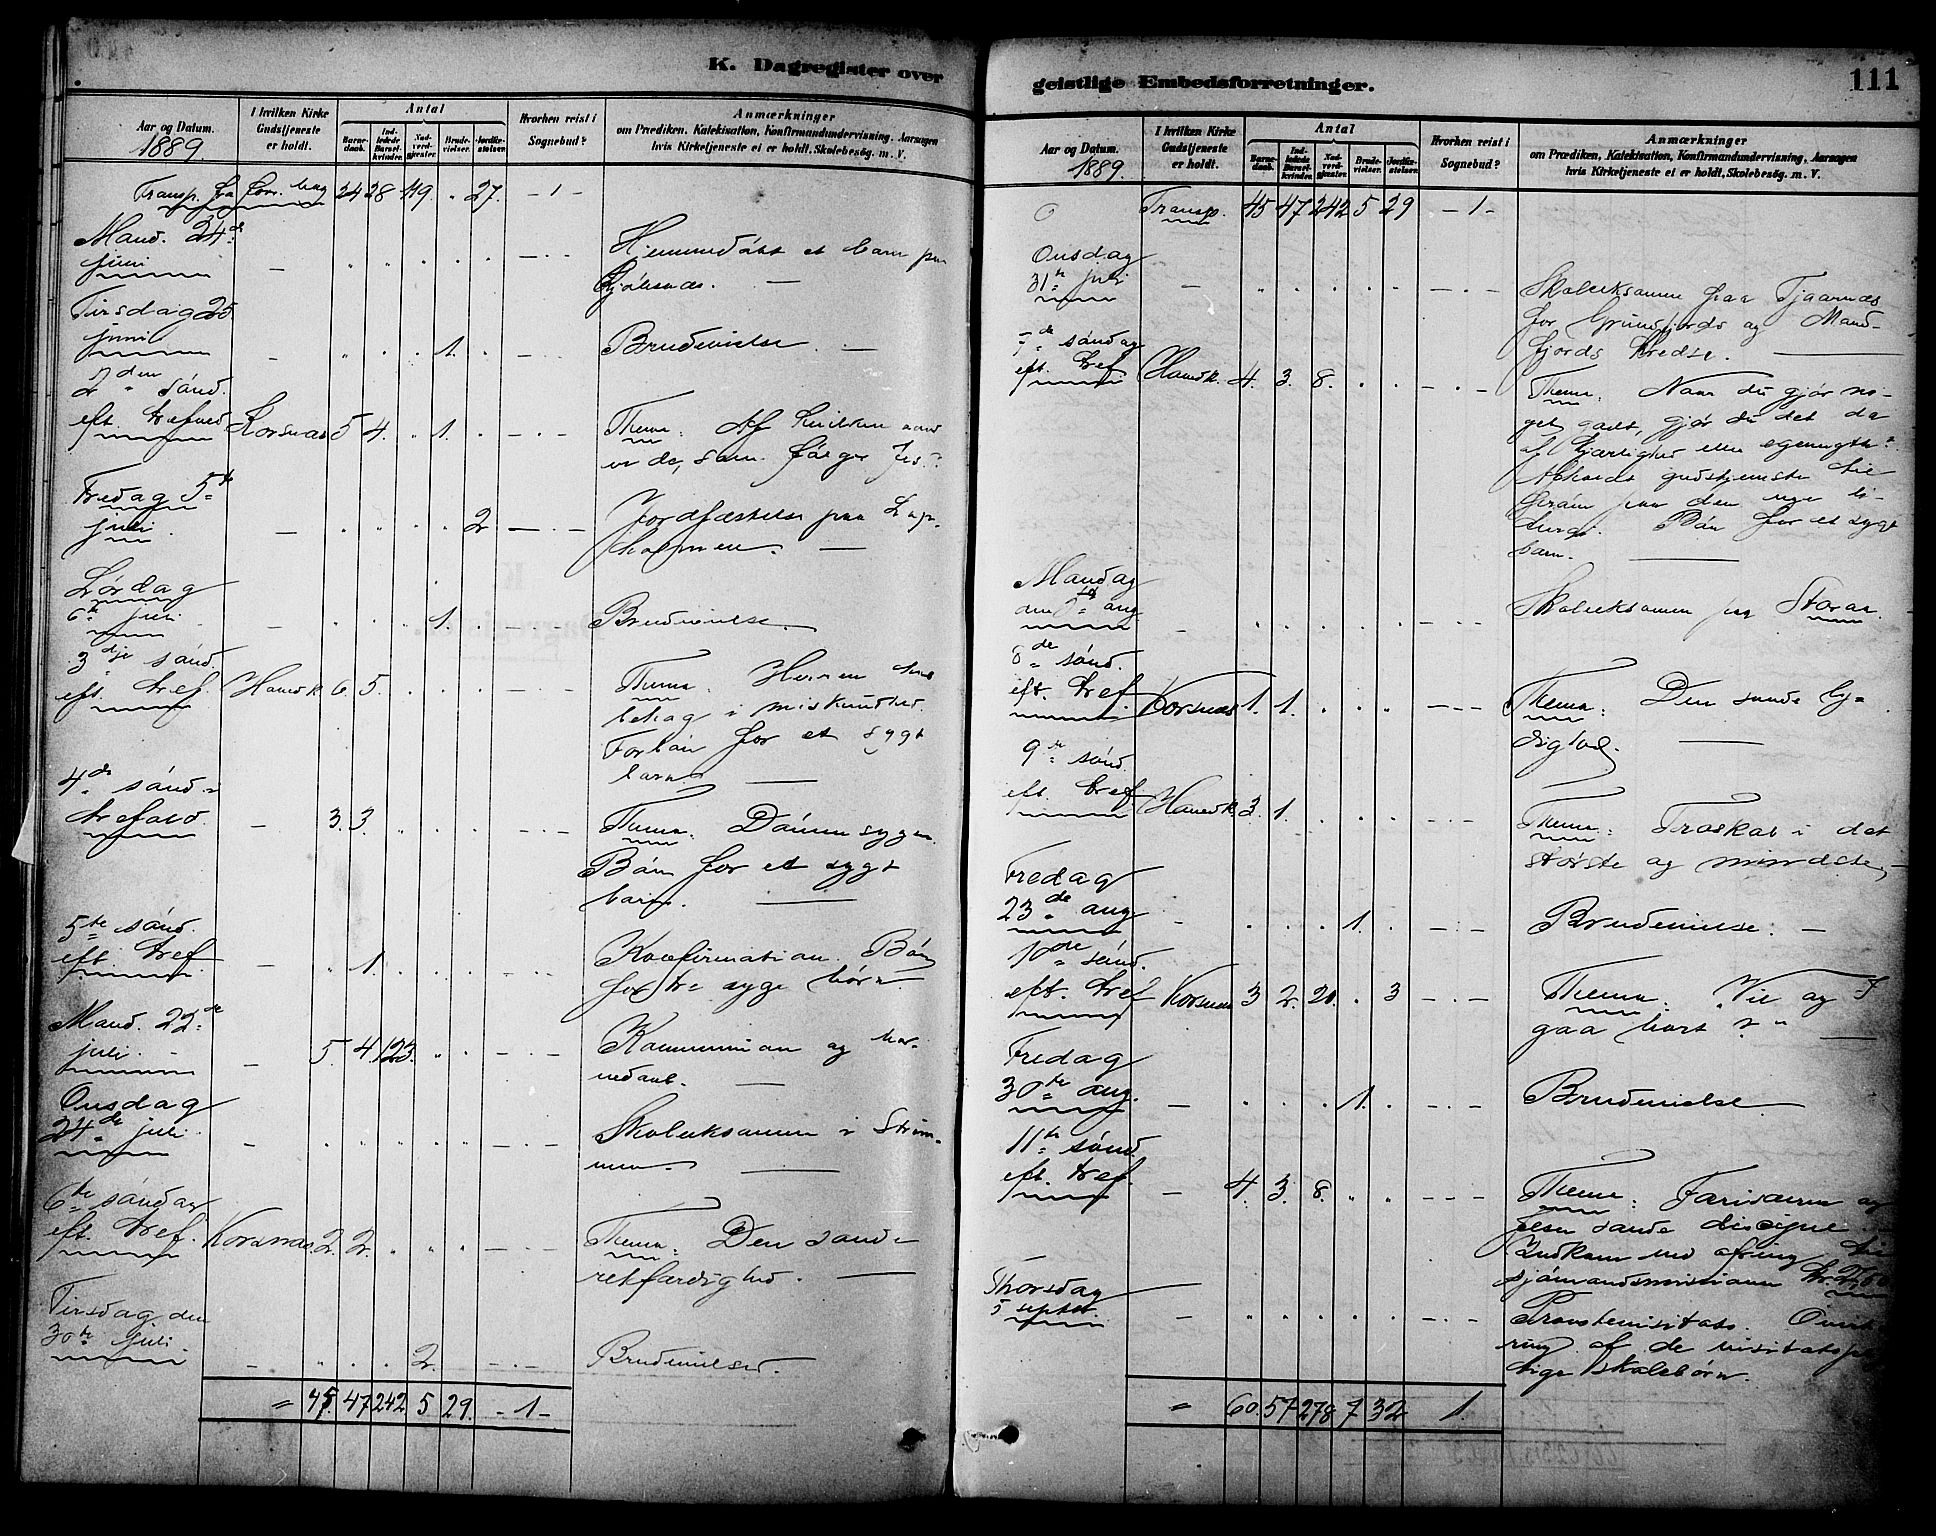 K. Dagregister over
Aar og Datum.
1889.
I hvilken Kirke Gudstjeneste er holdt.
Antal
Barnedaab.
Indledede Barselkvinder.
Nadverdgjester.
Brudevielser.
Jordfæstelser.
Hvorhen reist i Sognebud?
Anmærkninger
om Prædiken, Katekisation, Konfirmandundervisning, Aarsagen
hvis Kirketjeneste ei er holdt, Skolebesøg, m. V.
Transp. fra forr. bag 24 28 119. " 27. - 1 -
Mand. 24de
juni - Hjemmedøbt et barn paa
Kjøbsnæs. -
Tirsdag 25
juni - 1. Brudevielse. -
2den sønd.
eft. trefoed. Korsnæs 5 4. 1. Thema: Af hvilken aand
er de, som følger Jes.?
Fredag 5te
juli. - 2 Jordfæstelse paa
holmen. -
Lørdag
6te juli - 1. Brudevielse.
3dje sønd.
eft. tref. Hamk. 6. 5. Thema: Herren har
behag i miskundhed.
Forbøn for et sygt
barn. -
4de sønd.
trefold. - 3. 3. Thema:
Bøn for et sygt
barn. -
5te sønd.
eft. tref. - 1. Konfirmation. Bøn
for tre syge børn -
Mand. 22de
juli. - 5. 4. 123. Kommunion og bar-
nedaab. -
Onsdag
24de juli. - Skoleeksamen i Strøm-
men. -
6te søndag
eft. tref. Korsnæs. 2. 2. Thema: Den sande
retfærdighed. -
Tirsdag den
30te juli. - 2. Brudevielser
= 45. 47 242 5 29. - 1 -
geistlige Embedsforretninger.
111
Aar og Datum.
1889.
I hvilken Kirke Gudstjeneste er holdt.
Antal
Barnedaab.
Indledede Barselkvinder.
Nadverdgjester.
Brudevielser.
Jordfæstelser.
Hvorhen reist i Sognebud?
Anmærkninger
om Prædiken, Katekisation, Konfirmandundervisning, Aarsagen
hvis Kirketjeneste ei er holdt, Skolebesøg, m. V.
Transp. 45 47 242 5 29 - 1 -
Onsdag
31te juli - Skoleeksamen paa Tjaarnæs
for Grundfjords og Mand-
fjords kredse. -
7de søndag
eft. tref. Hamk. 4. 3. 8. Thema: Naar du gjør no-
get godt, gjør du det da
af kjærlighed eller egennytte?
Afholdt gudstjeneste
paa den nye li-
turgi. Bøn for et sygt
barn. -
Mandag
aug. - Skoleeksamen paa Storaa.
8de sønd.
eft. tref. Korsnæs 1. 1. Thema: Den sande ly-
dighed. -
9de sønd.
eft. tref. Hamk. 3. 1. Thema: Troskab i det
største og mindste. -
Fredag
23de aug. - 1. Brudevielse. -
10de sønd.
eft. tref. Korsnæs 3 2. 20. 3 Thema: "Vil og I
gaa bort?" -
Fredag
30te aug. - 1. Brudevielse.
11te sønd.
eft. tref. - 4. 3. 8. Thema: Farisæeren og
den sande discipel.
Indkom ved ofring til
sjømandsmissionen kr.
Thorsdag
5 septbr. - Provstevisitats.
af de visitatspli-
tige skolebørn.
= 60. 57 278 7 32 1.